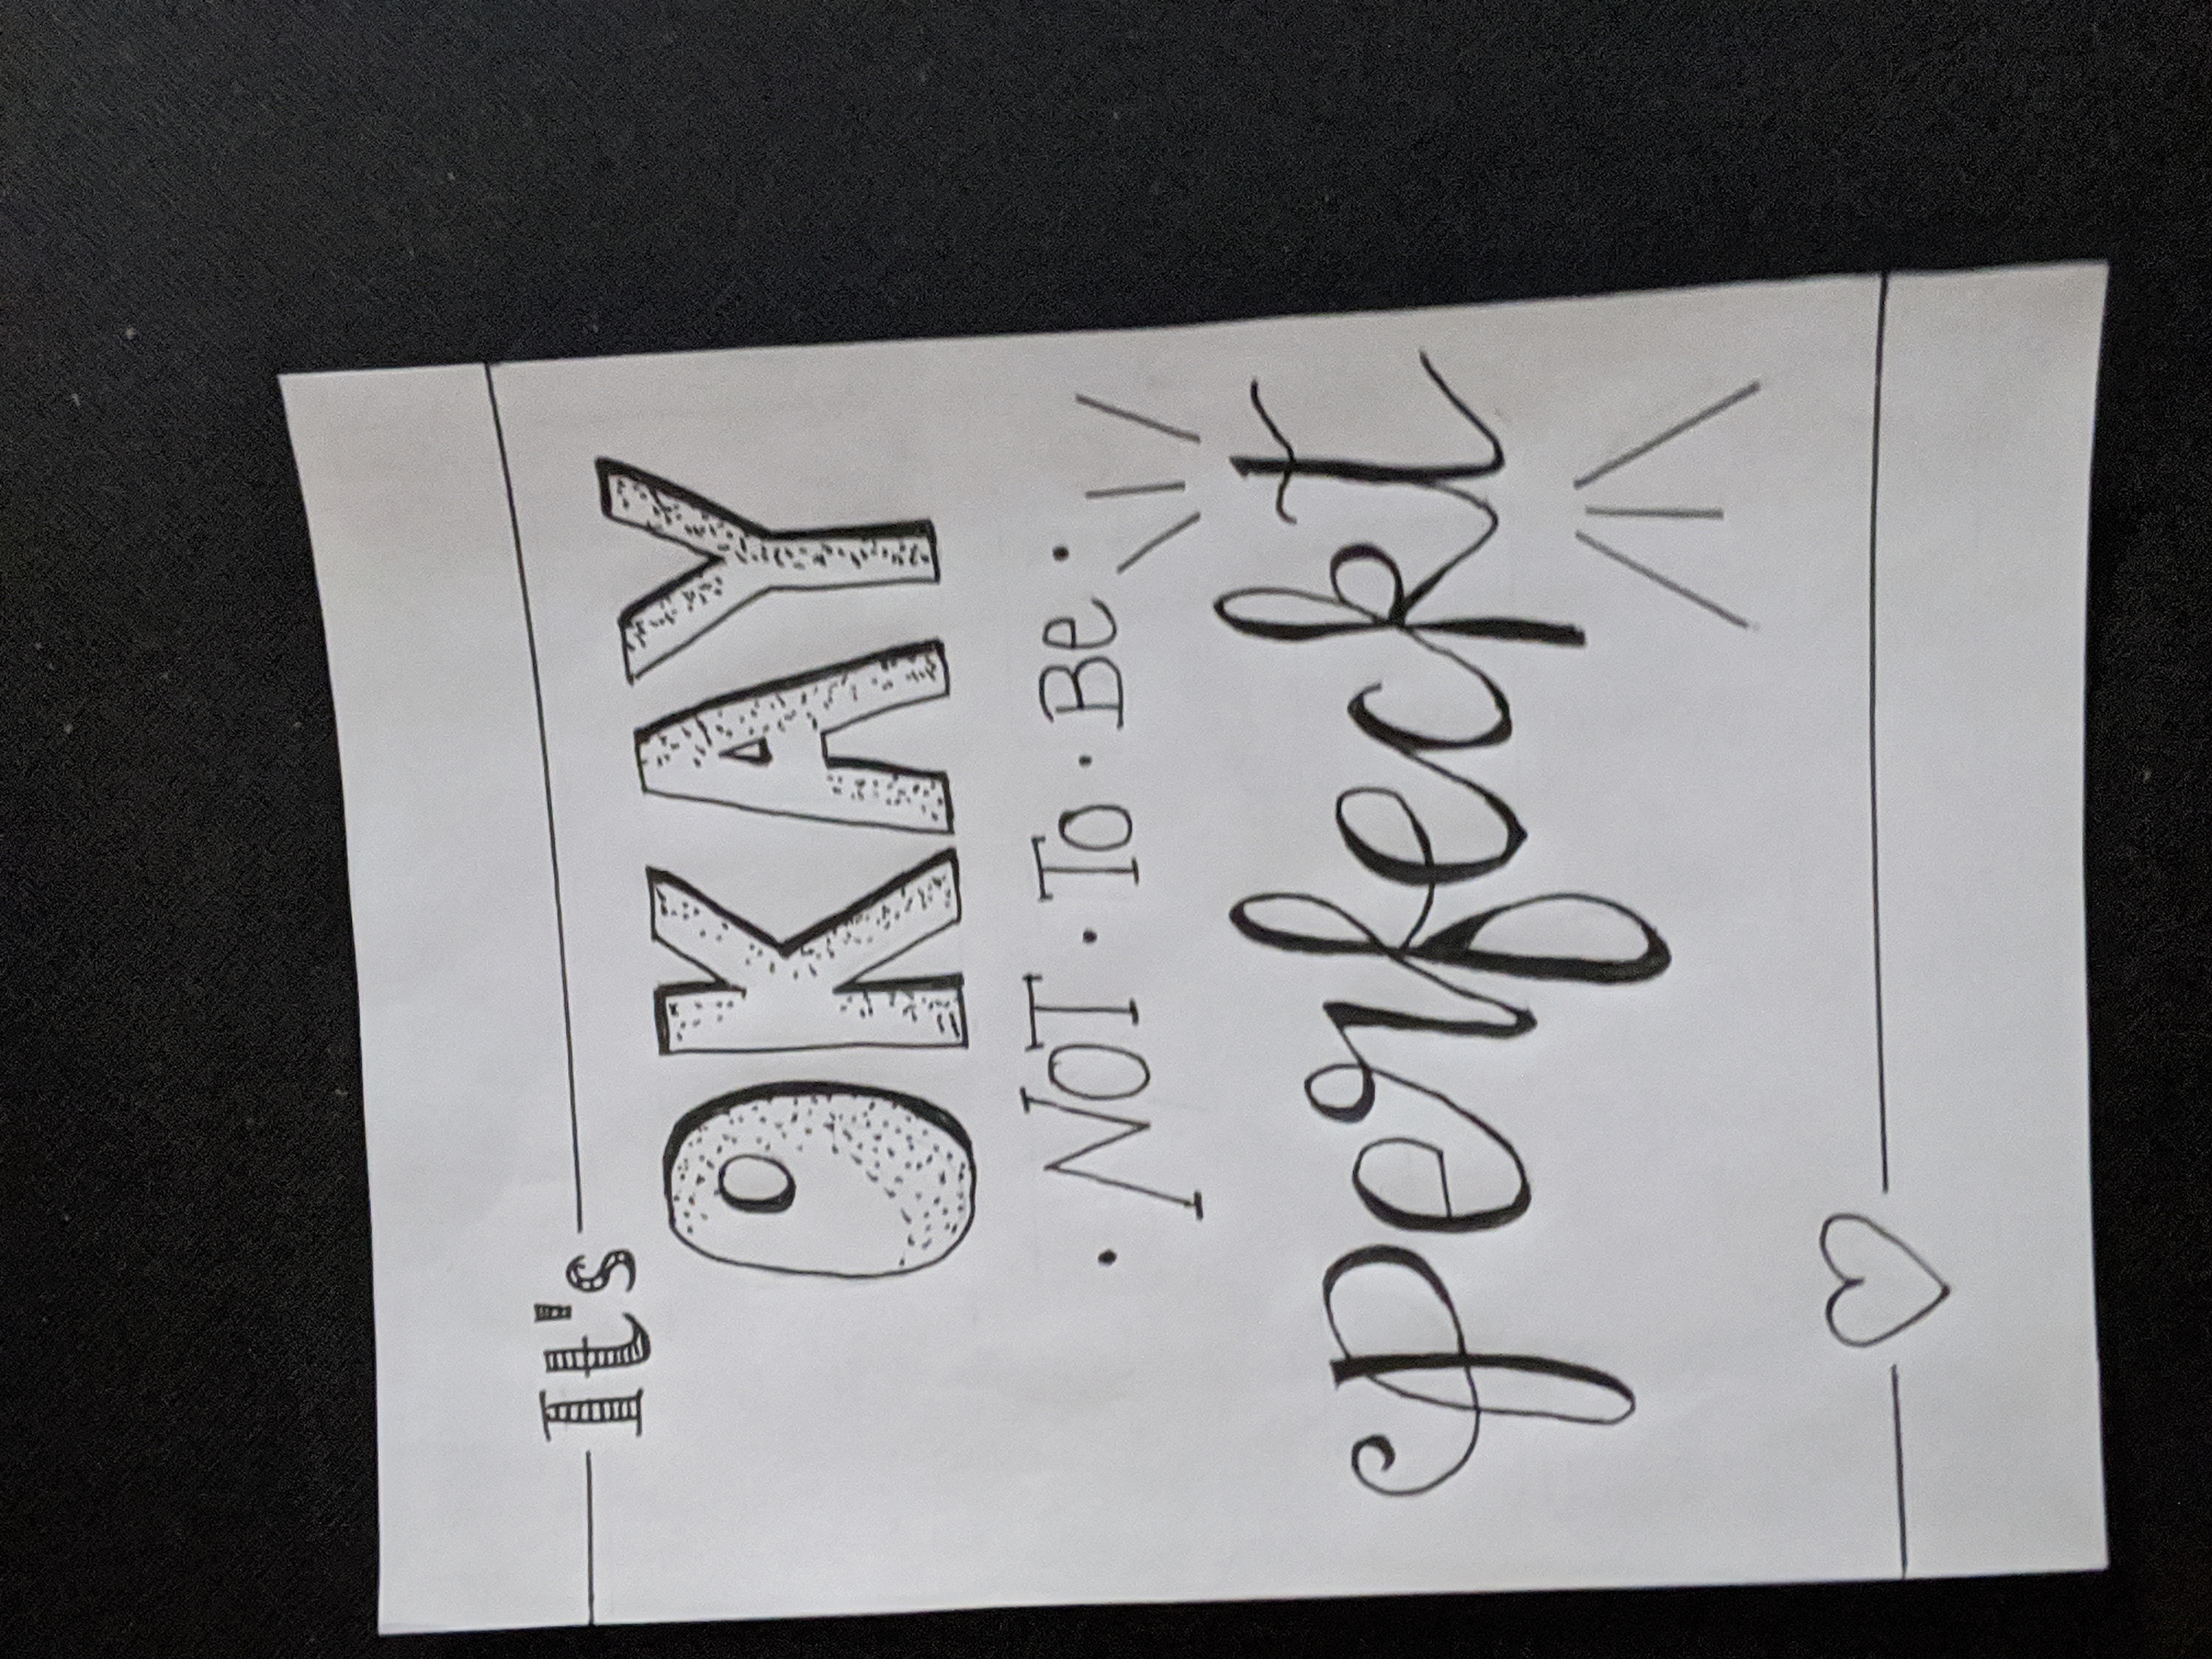 It's
OKAY
· NOT · To · Be ·
perfeckt